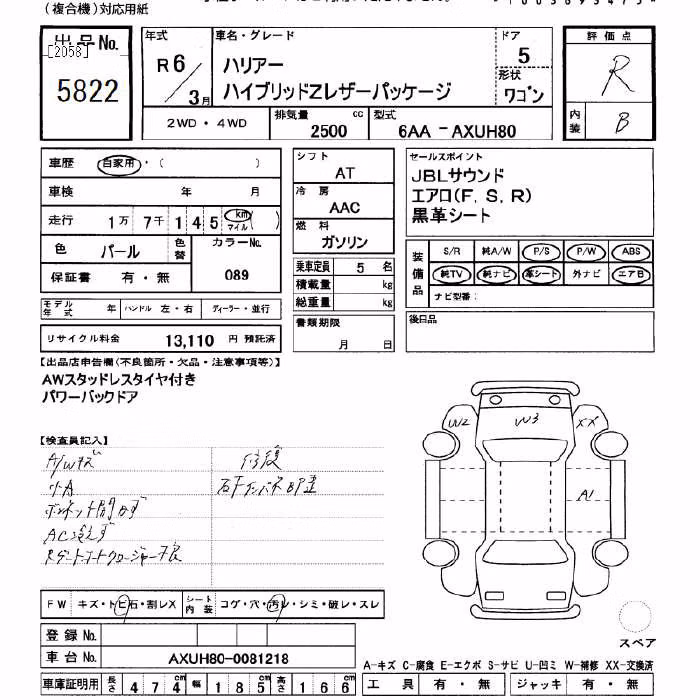 (複合機)対応用紙
出品No.
[2058]
5822
年式
R6/3月
車名・グレード
ハリアー
ハイブリッドZレザーパッケージ
ドア
5
形状
ワゴン
評価点
R
内装
B
2WD・4WD
排気量
2500 cc
型式
6AA -AXUH80
車歴 自家用・( )
車検 年 月
走行 1万 7千 1 4 5 km マイル( )
色 パール
色替
カラーNo.
089
保証書 有・無
モデル年式 年
ハンドル 左・右
ディーラー・並行
リサイクル料金 13,110 円 預託済
シフト
AT
冷房
AAC
燃料
ガソリン
乗車定員 5 名
積載量 kg
総重量 kg
書類期限
月 日
セールスポイント
JBLサウンド
エアロ(F, S, R)
黒革シート
装備品
S/R 純A/W P/S P/W ABS
純TV 純ナビ 革シート 外ナビ エアB
ナビ型番:
後日品
【出品店申告欄(不良箇所・欠品・注意事項等)】
AWスタッドレスタイヤ付き
パワーバックドア
【検査員記入】
A/Wキズ
小A
ボンネット開かず
AC冷えず
修復
W2 W3 XX
A1
FW キズ・トビ石・割レX
シート内装 コゲ・穴・汚レ・シミ・破レ・スレ
登録No.
車台No. AXUH80-0081218
車庫証明用 長さ 474cm 幅 185cm 高さ 166cm
スペア
A-キズ C-腐食 E-エクボ S-サビ U-凹ミ W-補修 XX-交換済
工具 有・無 ジャッキ 有・無